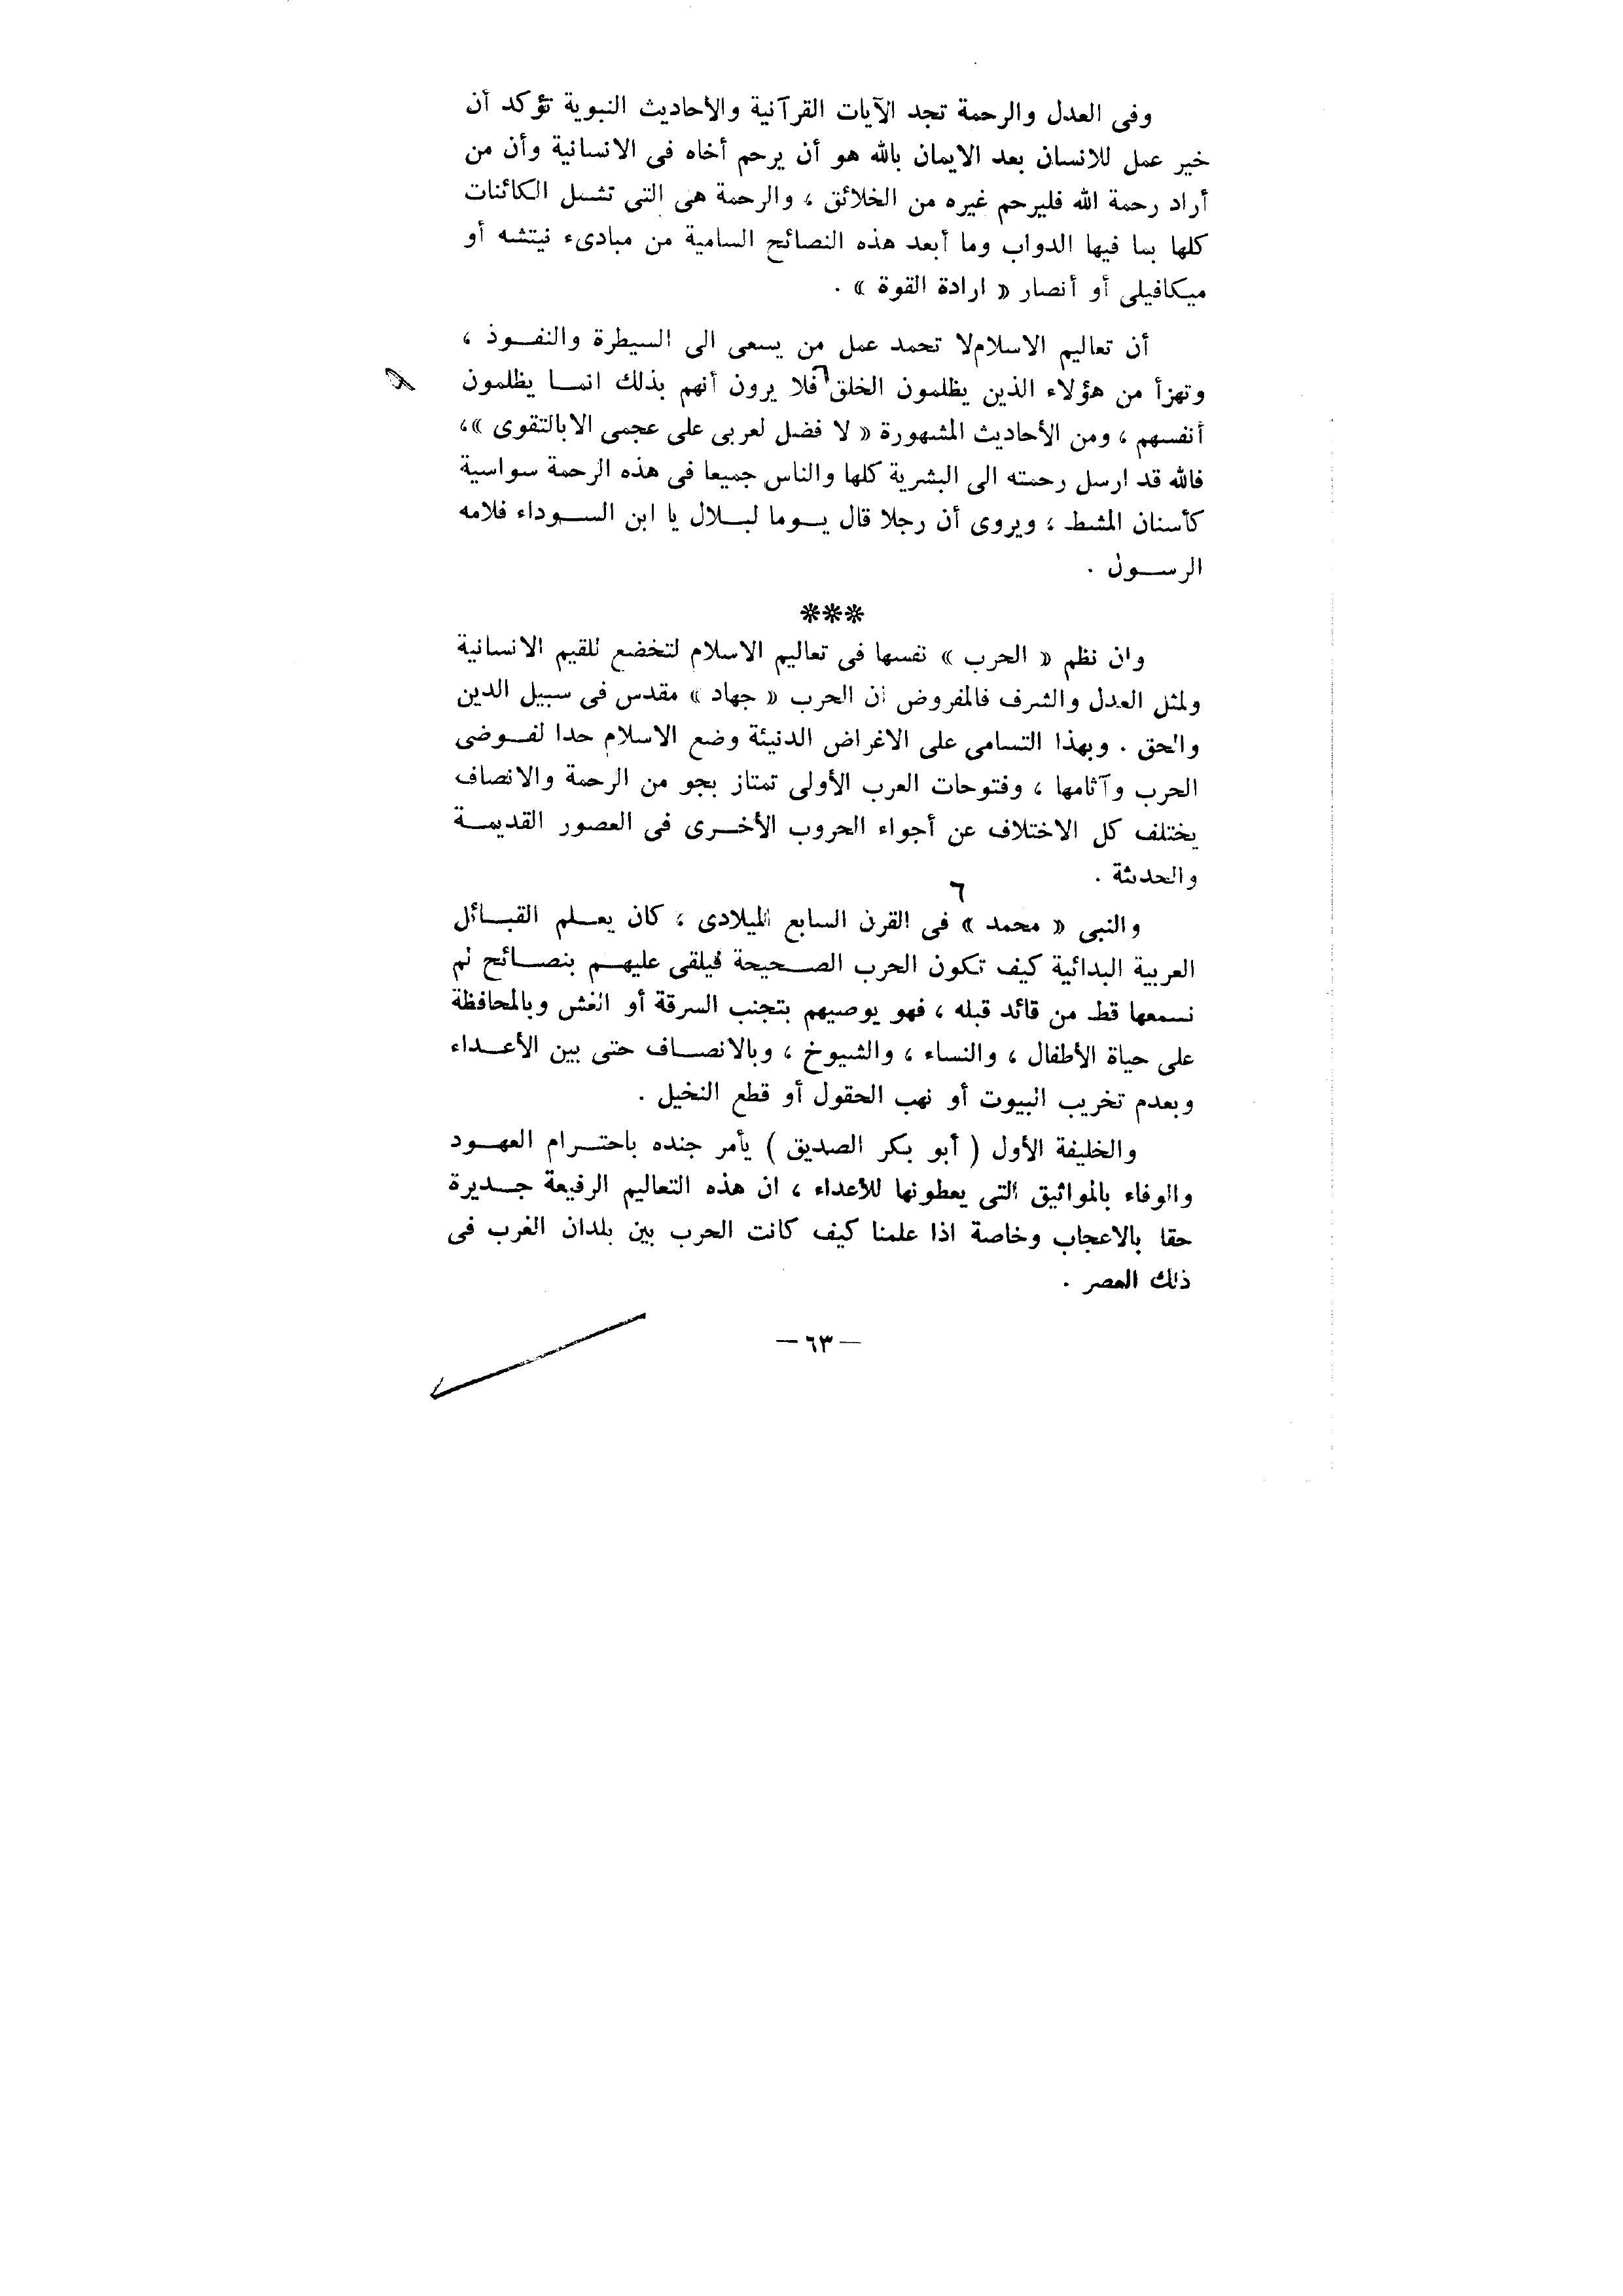 وفى العدل والرحمة تجد الآيات القرآنية والأحاديث النبوية تؤكد أن
خير عمل للانسان بعد الايمان بالله هو أن يرحم أخاه فى الانسانية وأن من
أراد رحمة الله فليرحم غيره من الخلائق ، والرحمة هى التى تشمل الكائنات
كلها بما فيها الدواب وما أبعد هذه النصائح السامية من مبادىء نيتشه أو
ميكافيلى أو أنصار « ارادة القوة » .
أن تعاليم الاسلام لا تحمد عمل من يسعى الى السيطرة والنفــوذ ،
وتهزأ من هؤلاء الذين يظلمون الخلق فلا يرون أنهم بذلك انمــا يظلمون
أنفسهم ، ومن الأحاديث المشهورة « لا فضل لعربى على عجمى الا بالتقوى »،
فالله قد ارسل رحمته الى البشرية كلها والناس جميعا فى هذه الرحمة سواسية
كأسنان المشط ، ويروى أن رجلا قال يــوما لبــلال يا ابن الســوداء فلامه
الرســول .
***
وان نظم « الحرب » نفسها فى تعاليم الاسلام لتخضع للقيم الانسانية
ولمثل العدل والشرف فالمفروض ان الحرب « جهاد » مقدس فى سبيل الدين
والحق . وبهذا التسامى على الاغراض الدنيئة وضع الاسلام حدا لفــوضى
الحرب وآثامها ، وفتوحات العرب الأولى تمتاز بجو من الرحمة والانصاف
يختلف كل الاختلاف عن أجواء الحروب الأخــرى فى العصور القديمــة
والحديثة .
والنبى « محمد » فى القرن السابع الميلادى ، كان يعــلم القبــائل
العربية البدائية كيف تكون الحرب الصــحيحة فيلقى عليهــم بنصــائح لم
نسمعها قط من قائد قبله ، فهو يوصيهم بتجنب السرقة أو الغش وبالمحافظة
على حياة الأطفال ، والنساء ، والشيوخ ، وبالانصــاف حتى بين الأعــداء
وبعدم تخريب البيوت أو نهب الحقول أو قطع النخيل .
والخليفة الأول ( أبو بكر الصديق ) يأمر جنده باحتــرام العهــود
والوفاء بالمواثيق التى يعطونها للأعداء ، ان هذه التعاليم الرفيعة جــديرة
حقا بالاعجاب وخاصة اذا علمنا كيف كانت الحرب بين بلدان الغرب فى
ذلك العصر .
— ٦٣ —